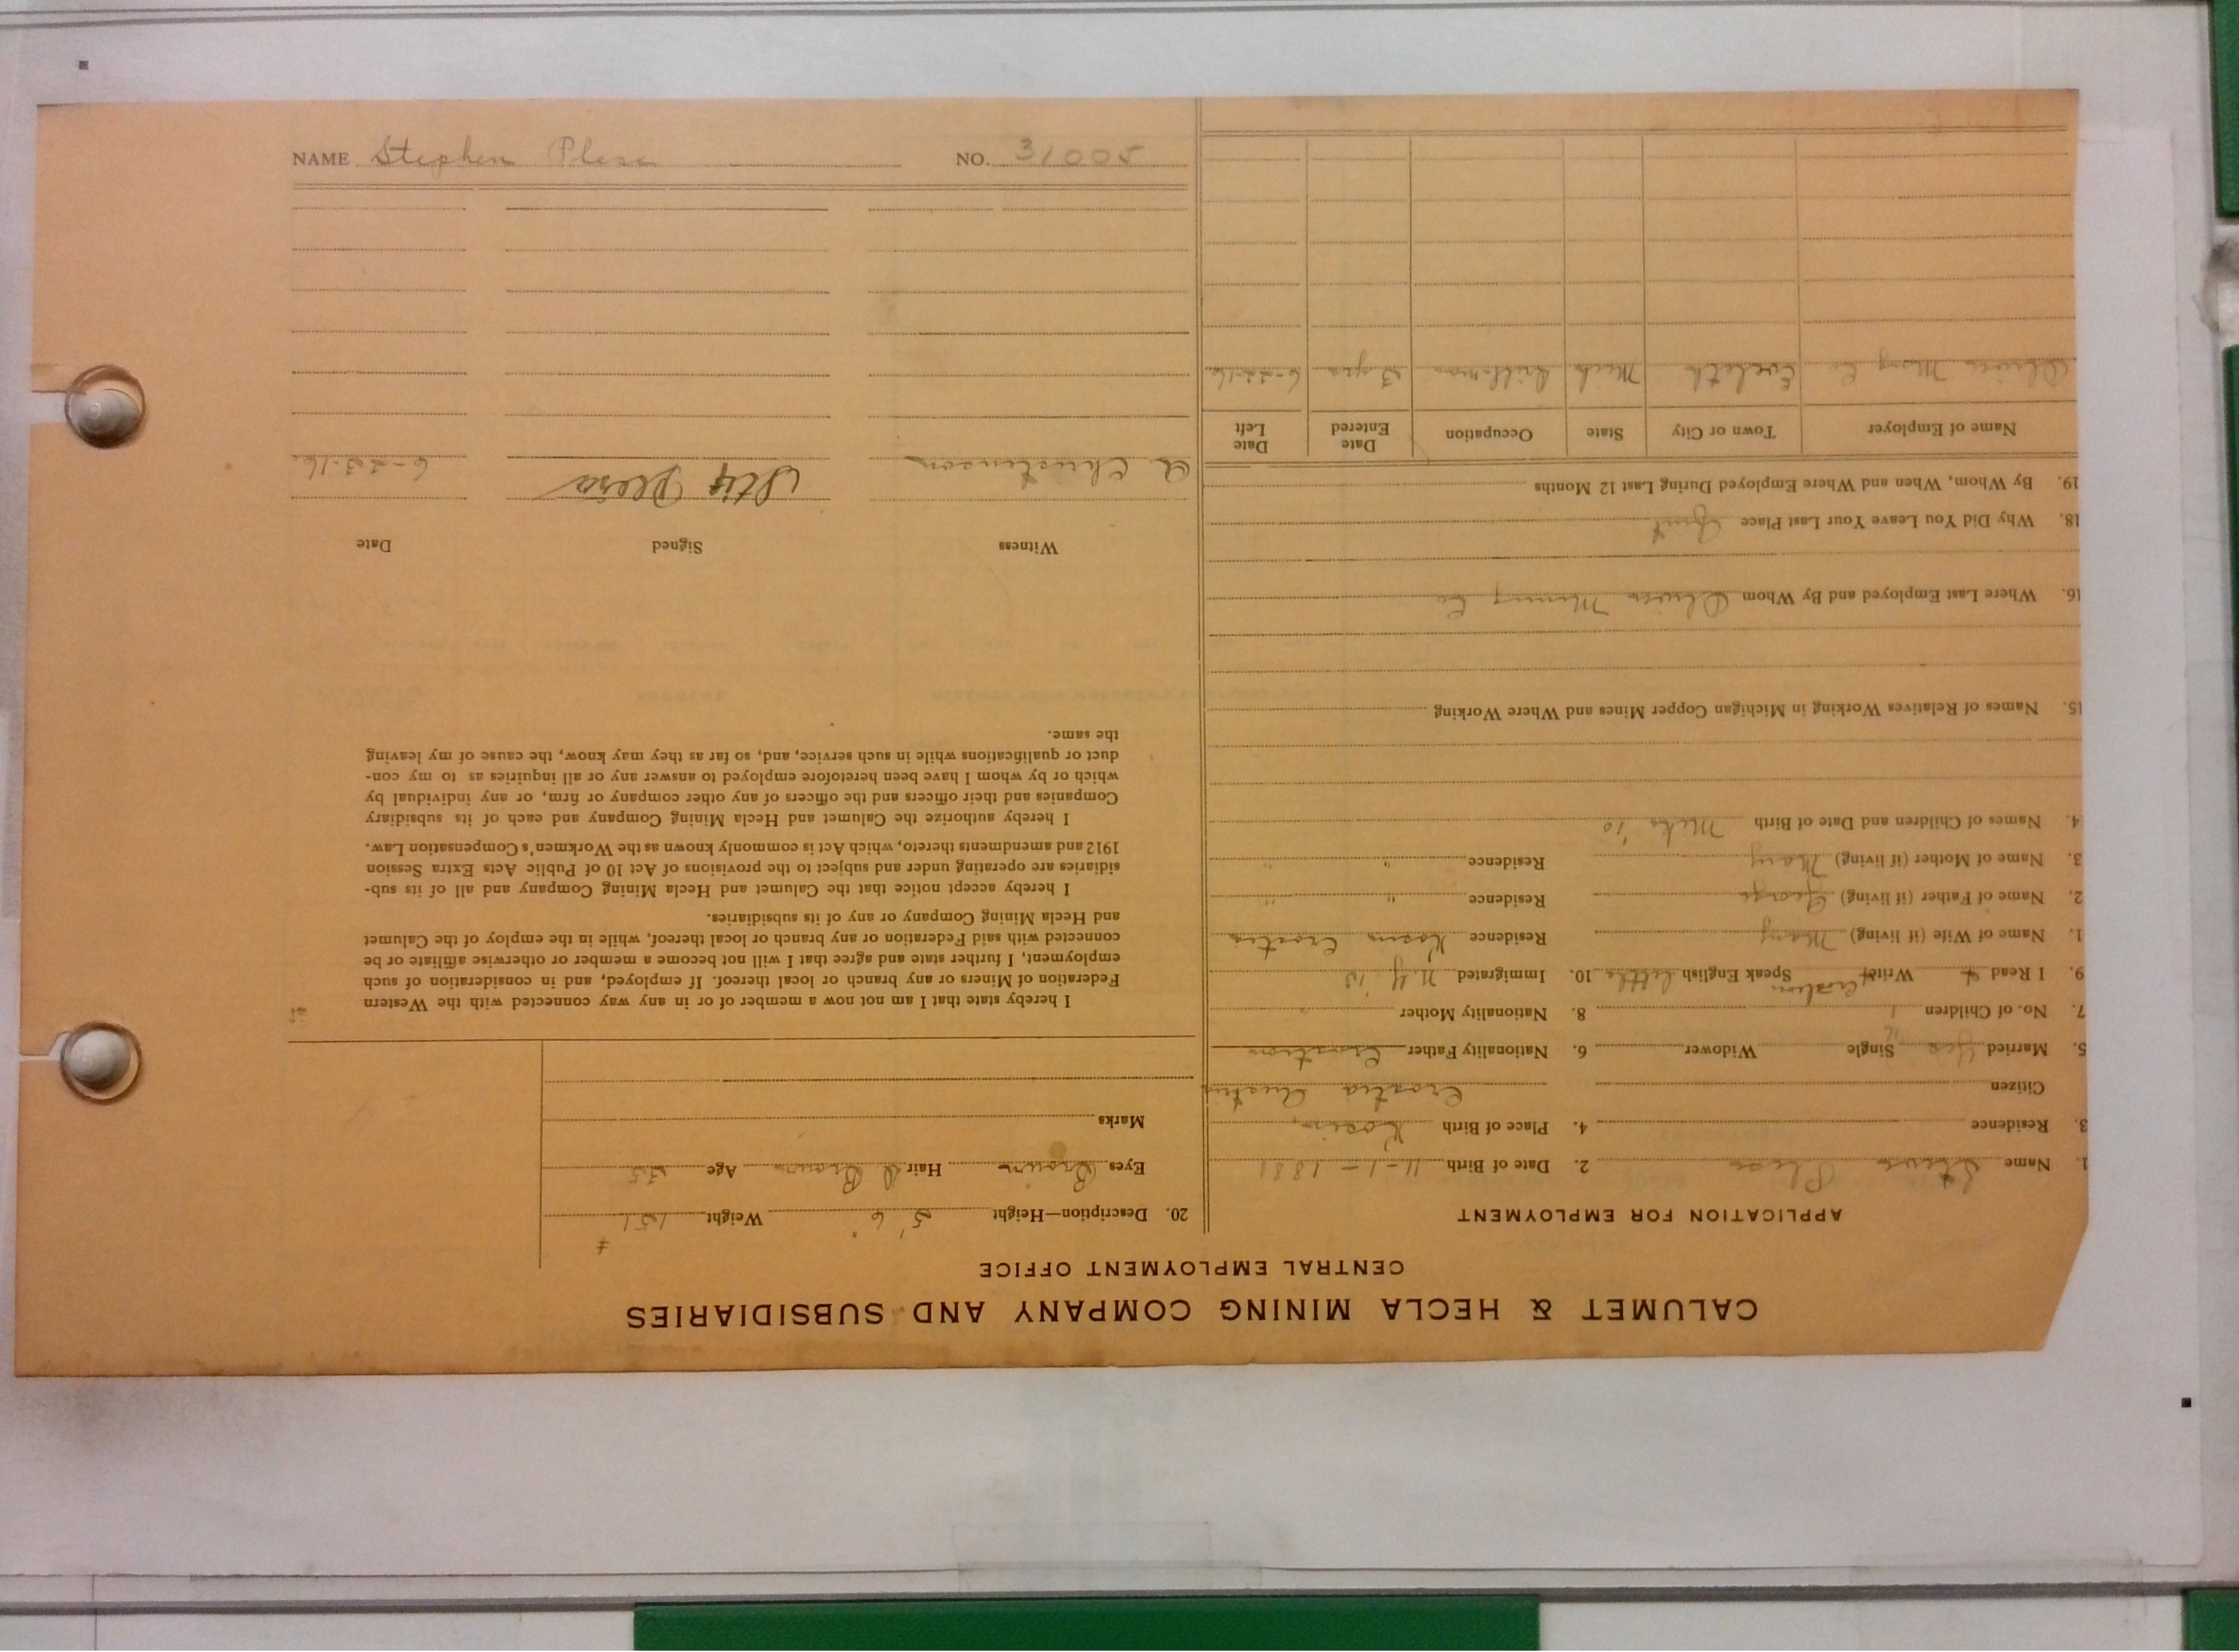 NAME Stephen Plesa NO. 31005
CALUMET & HECLA MINING COMPANY AND SUBSIDIARIES
CENTRAL EMPLOYMENT OFFICE
APPLICATION FOR EMPLOYMENT
1. Name Steve Plesa 2. Date of Birth 11-1-1881
3. Residence 4. Place of Birth
Citizen Croatia Austria
5. Married Yes Single Widower 6. Nationality Father Croatian
7. No. of Children 1 8. Nationality Mother "
9. I Read Write Croatian Speak English little 10. Immigrated N.Y.
1. Name of Wife (if living) Mary Residence Croatia
2. Name of Father (if living) George Residence " "
3. Name of Mother (if living) Mary Residence " "
4. Names of Children and Date of Birth Mike
15. Names of Relatives Working in Michigan Copper Mines and Where Working
16. Where Last Employed and By Whom Oliver Mining Co
18. Why Did You Leave Your Last Place Quit
19. By Whom, When and Where Employed During Last 12 Months
Name of Employer Town or City State Occupation Date Entered Date Left
Oliver Mining Co Eveleth Mich Drillman 3 yrs 6-22-16
20. Description—Height 5' 6" Weight 151 #
Eyes Brown Hair D Brown Age 35
Marks
I hereby state that I am not now a member of or in any way connected with the Western
Federation of Miners or any branch or local thereof. If employed, and in consideration of such
employment, I further state and agree that I will not become a member or otherwise affiliate or be
connected with said Federation or any branch or local thereof, while in the employ of the Calumet
and Hecla Mining Company or any of its subsidiaries.
I hereby accept notice that the Calumet and Hecla Mining Company and all of its sub-
sidiaries are operating under and subject to the provisions of Act 10 of Public Acts Extra Session
1912 and amendments thereto, which Act is commonly known as the Workmen's Compensation Law.
I hereby authorize the Calumet and Hecla Mining Company and each of its subsidiary
Companies and their officers and the officers of any other company or firm, or any individual by
which or by whom I have been heretofore employed to answer any or all inquiries as to my con-
duct or qualifications while in such service, and, so far as they may know, the cause of my leaving
the same.
Witness Signed Date
A Christenson 6-23-16